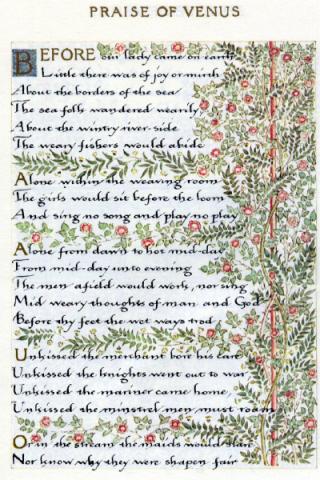 PRAISE OF VENUS
BEFORE our lady came on earth
Little there was of joy or mirth
About the borders of the sea
The sea folk wandered wearily,
About the wintry river-side
The weary fishers would abide
Alone within the weaving room
The girls would sit before the loom
And sing no song and play no play
Alone from dawn to hot mid-day
From mid-day unto evening
The men afield would work, nor sing
Mid weary thoughts of man and God
Before thy feet the wet ways trod
Unkissed the merchant bore his care
Unkissed the knights went out to war
Unkissed the mariner came home,
Unkissed the minstrel men must roam
Or in the stream the maids would stare
Nor know why they were shapen fair